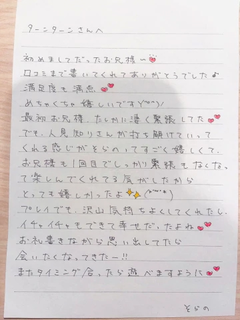 ターンターンさんへ
初めましてだったお兄様ー💕
口コミまで書いてくれてありがとうでした♪
満足度も満点💕
めちゃくちゃ嬉しいです(´∀`)/
最初お兄様、たしかに凄く緊張してた💕
でも、人見知りさんが打ち解けていって
くれる感じがそらのってすごく嬉しくて、
お兄様も1回目でしっかり緊張もなくなっ
て楽しんでくれてる気がしたから
とっても嬉しかったよ✨(^ー^)
プレイでも、沢山気持ちよくしてくれたし、
イチャイチャもできて幸せだったよね💕
お礼書きながら思い出してたら
会いたくなってきたー!!
またタイミング合ったら遊べますように💕
そらの